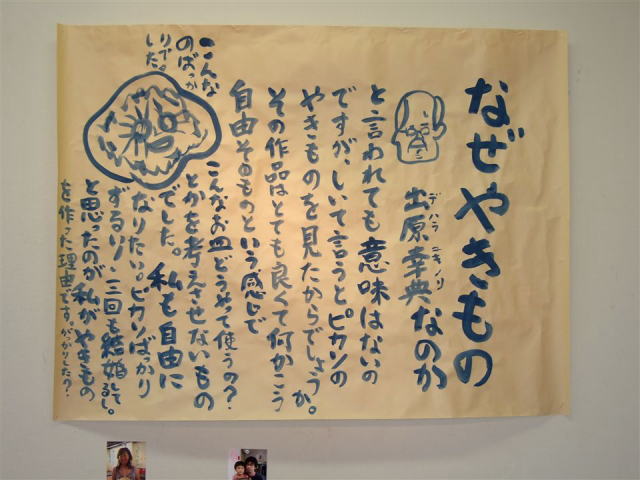 なぜやきもの
デハラ ユキノリ
出原幸典なのか
と言われても意味はないの
ですが、しいて言うとピカソの
やきものを見たからでしょうか。
その作品はとても良くて何かこう
自由そのものという感じで
こんなお皿どうやって使うの？
とかを考えさせないもの
でした。私も自由に
なりたい。ピカソばっかり
ずるい！三回も結婚してるし。
と思ったのが私がやきもの
を作った理由です。がっかりした？
こんな
のばっか
りで
した